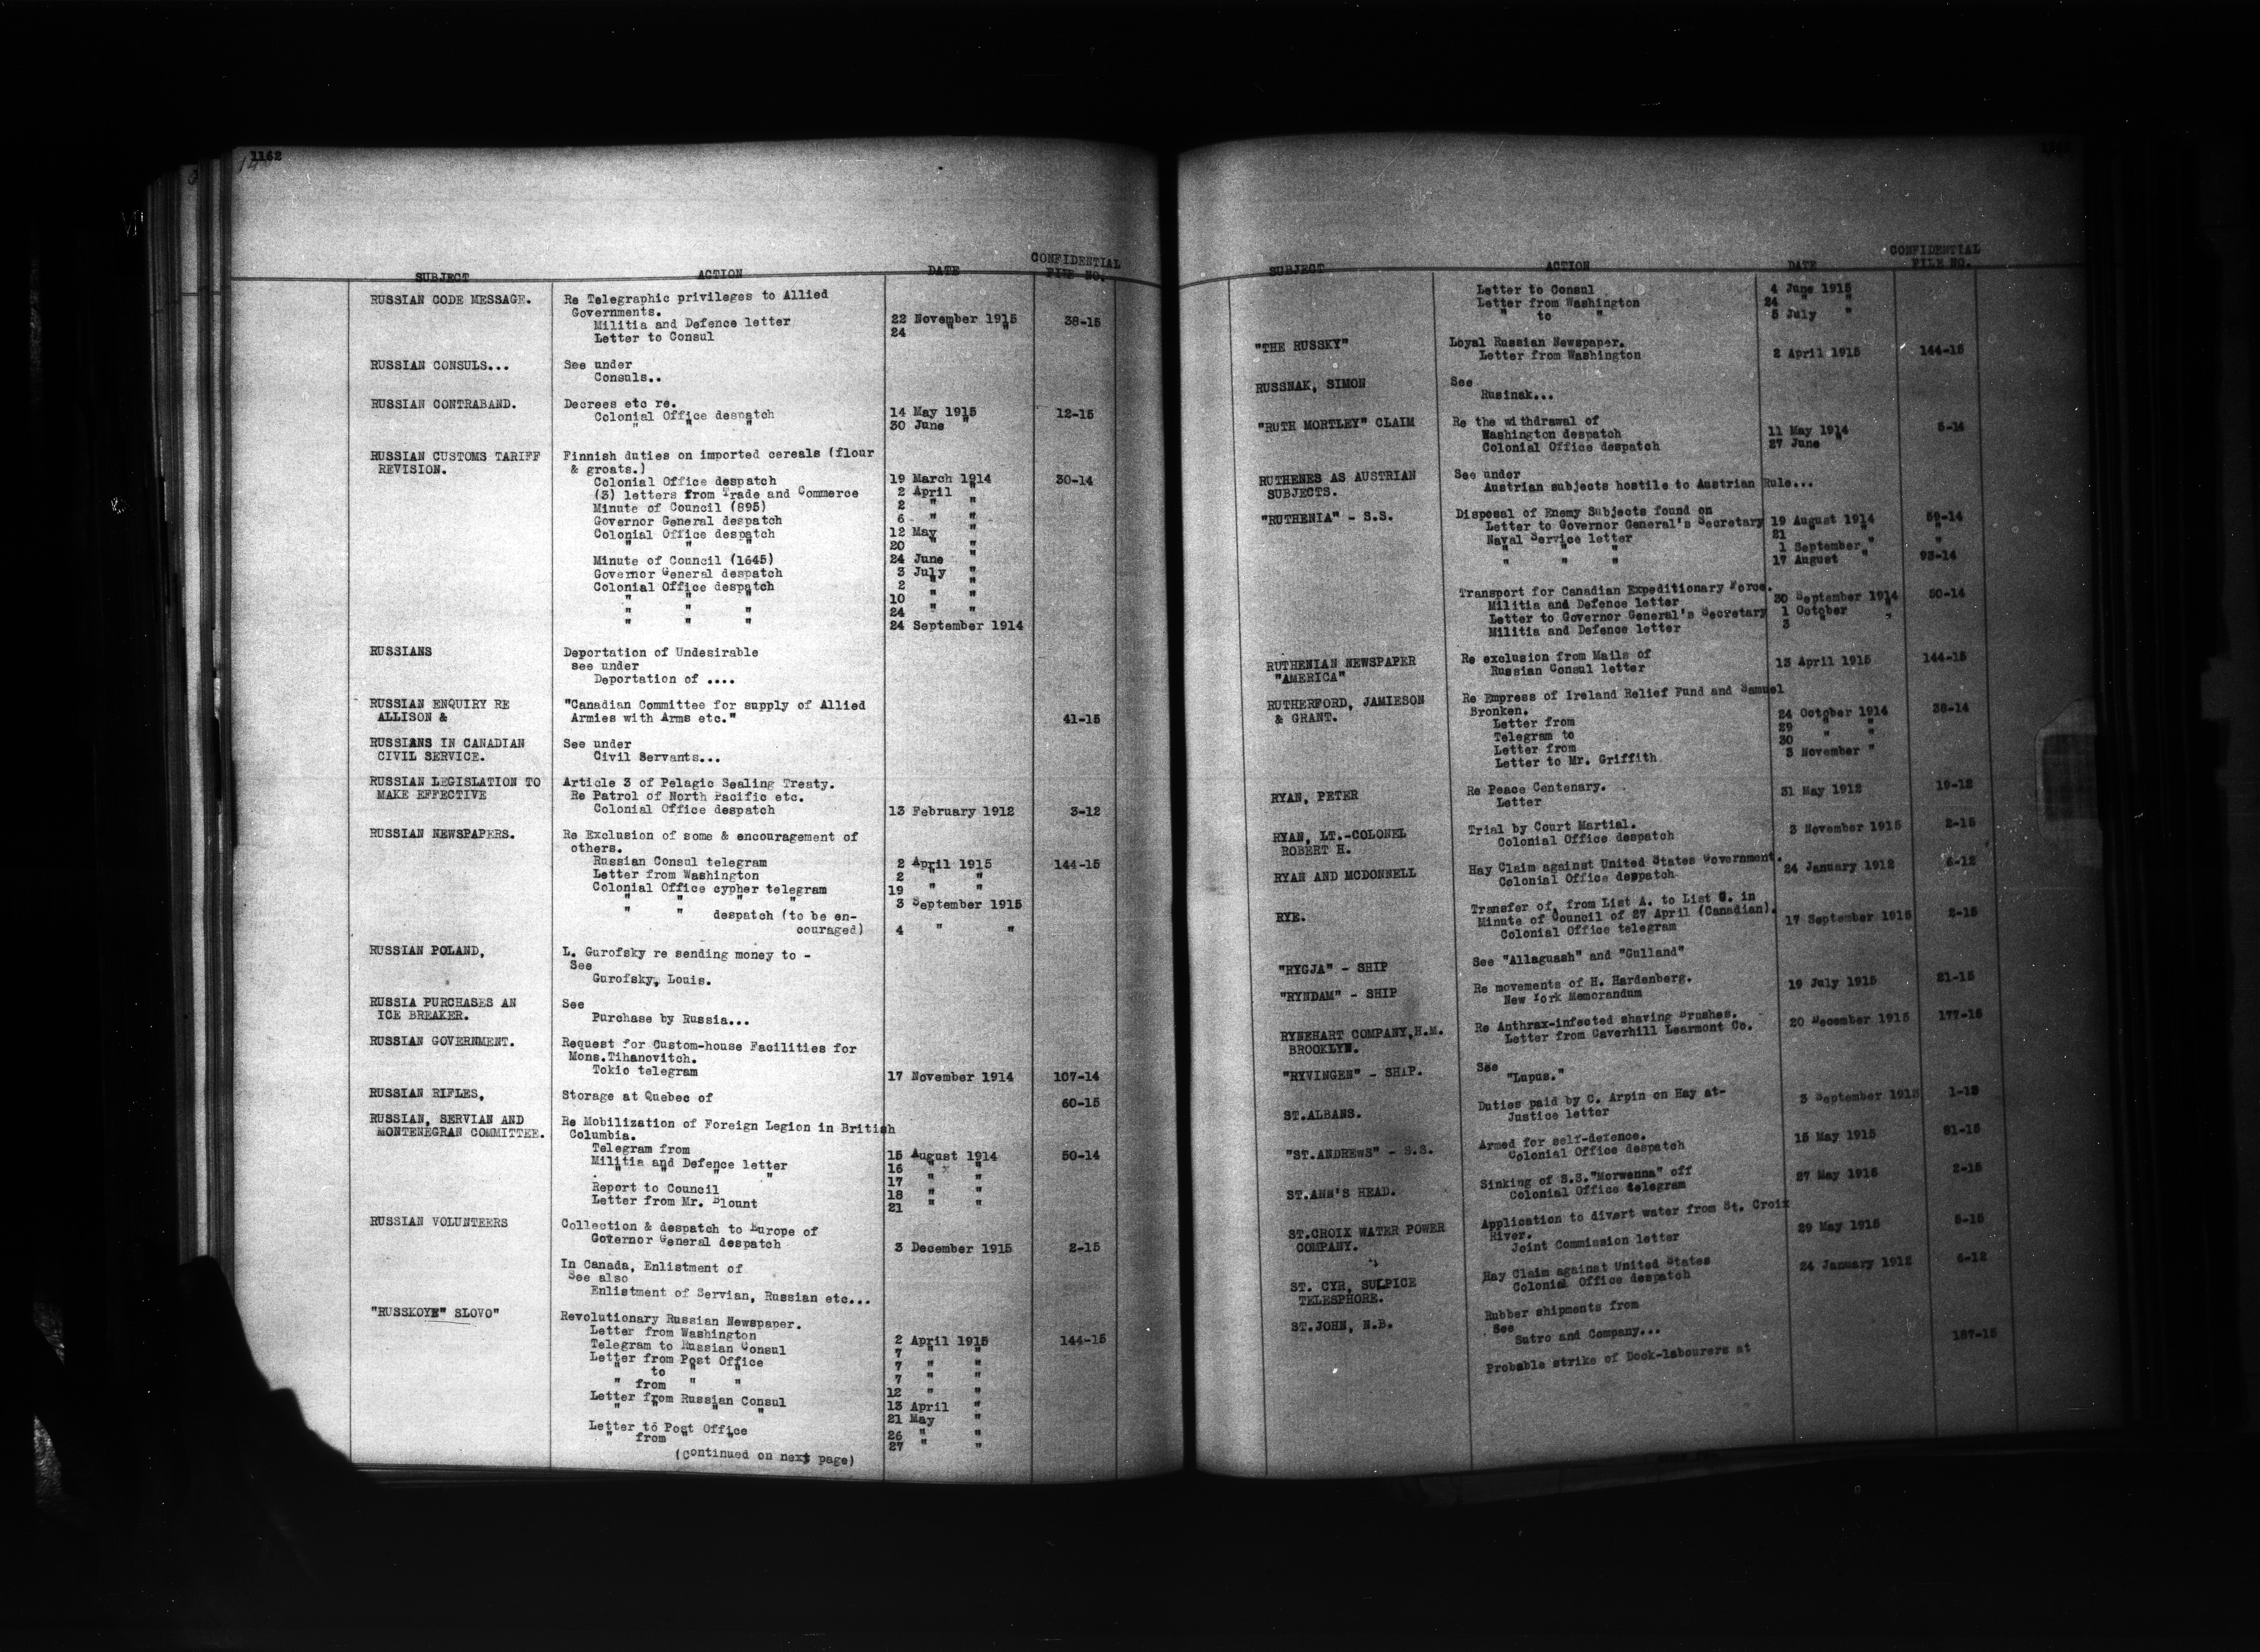 1162
SUBJECT ACTION DATE CONFIDENTIAL FILE NO.
RUSSIAN CODE MESSAGE. Re Telegraphic privileges to Allied
Governments.
Militia and Defence letter 22 November 1915 38-15
Letter to Consul 24 " "
RUSSIAN CONSULS... See under
Consuls..
RUSSIAN CONTRABAND. Decrees etc re.
Colonial Office despatch 14 May 1915 12-15
" " " 30 June "
RUSSIAN CUSTOMS TARIFF Finnish duties on imported cereals (flour
REVISION. & groats.)
Colonial Office despatch 19 March 1914 30-14
(3) letters from Trade and Commerce 2 April "
Minute of Council (895) 2 " "
Governor General despatch 6 " "
Colonial Office despatch 12 May "
" " " 20 " "
Minute of Council (1645) 24 June "
Governor General despatch 3 July "
Colonial Office despatch 2 " "
" " " 10 " "
" " " 24 " "
" " " 24 September 1914
RUSSIANS Deportation of Undesirable
see under
Deportation of ....
RUSSIAN ENQUIRY RE "Canadian Committee for supply of Allied
ALLISON & Armies with Arms etc." 41-15
RUSSIANS IN CANADIAN See under
CIVIL SERVICE. Civil Servants...
RUSSIAN LEGISLATION TO Article 3 of Pelagic Sealing Treaty.
MAKE EFFECTIVE Re Patrol of North Pacific etc.
Colonial Office despatch 13 February 1912 3-12
RUSSIAN NEWSPAPERS. Re Exclusion of some & encouragement of
others.
Russian Consul telegram 2 April 1915 144-15
Letter from Washington 2 " "
Colonial Office cypher telegram 19 " "
" " " " 3 September 1915
" " despatch (to be en-
couraged) 4 " "
RUSSIAN POLAND, L. Gurofsky re sending money to -
See
Gurofsky, Louis.
RUSSIA PURCHASES AN See
ICE BREAKER. Purchase by Russia...
RUSSIAN GOVERNMENT. Request for Custom-house Facilities for
Mons.Tihanovitch.
Tokio telegram 17 November 1914 107-14
RUSSIAN RIFLES, Storage at Quebec of 60-15
RUSSIAN, SERVIAN AND Re Mobilization of Foreign Legion in British
MONTENEGRAN COMMITTEE. Columbia.
Telegram from 15 August 1914 50-14
Militia and Defence letter 16 " "
" " " " 17 " "
Report to Council 18 " "
Letter from Mr. Blount 21 " "
RUSSIAN VOLUNTEERS Collection & despatch to Europe of
Governor General despatch 3 December 1915 2-15
In Canada, Enlistment of
See also
Enlistment of Servian, Russian etc...
"RUSSKOYE" SLOVO" Revolutionary Russian Newspaper.
Letter from Washington 2 April 1915 144-15
Telegram to Russian Consul 7 " "
Letter from Post Office 7 " "
" to " " 7 " "
" from " " 12 " "
Letter from Russian Consul 13 April "
" " " " 21 May "
Letter to Post Office 26 " "
" from " " 27 " "
(Continued on next page)
SUBJECT ACTION DATE CONFIDENTIAL FILE NO.
Letter to Consul 4 June 1915
Letter from Washington 24 " "
" to " 5 July "
"THE RUSSKY" Loyal Russian Newspaper.
Letter from Washington 2 April 1915 144-15
RUSSNAK, SIMON See
Rusinak...
"RUTH MORTLEY" CLAIM Re the withdrawal of
Washington despatch 11 May 1914 5-14
Colonial Office despatch 27 June "
RUTHENES AS AUSTRIAN See under
SUBJECTS. Austrian subjects hostile to Austrian Rule...
"RUTHENIA" - S.S. Disposal of Enemy Subjects found on
Letter to Governor General's Secretary 19 August 1914 59-14
Naval Service letter 21 " " "
" " " 1 September " "
" " " 17 August " 93-14
Transport for Canadian Expeditionary Force.
Militia and Defence letter 30 September 1914 50-14
Letter to Governor General's Secretary 1 October "
Militia and Defence letter 3 " "
RUTHENIAN NEWSPAPER Re exclusion from Mails of
"AMERICA" Russian Consul letter 13 April 1915 144-15
RUTHERFORD, JAMIESON Re Empress of Ireland Relief Fund and Samuel
& GRANT. Bronken.
Letter from 24 October 1914 38-14
Telegram to 29 " "
Letter from 30 " "
Letter to Mr. Griffith 3 November "
RYAN, PETER Re Peace Centenary.
Letter 31 May 1912 19-12
RYAN, LT.-COLONEL Trial by Court Martial.
ROBERT H. Colonial Office despatch 3 November 1915 2-15
RYAN AND MCDONNELL Hay Claim against United States Government.
Colonial Office despatch 24 January 1912 6-12
RYE. Transfer of, from List A. to List C. in
Minute of Council of 27 April (Canadian).
Colonial Office telegram 17 September 1915 2-15
"RYGJA" - SHIP See "Allaguash" and "Gulland"
"RYNDAM" - SHIP Re movements of H. Hardenberg.
New York Memorandum 19 July 1915 21-15
RYNEHART COMPANY,H.M. Re Anthrax-infected shaving Brushes.
BROOKLYN. Letter from Caverhill Learmont Co. 20 December 1915 177-15
"RYVINGEN" - SHIP. See
"Lupus."
ST.ALBANS. Duties paid by C. Arpin on Hay at-
Justice letter 3 September
"ST.ANDREWS" - S.S. Armed for self-defence.
Colonial Office despatch 15 May 1915 81-15
ST.ANN'S HEAD. Sinking of S.S."Morwenna" off
Colonial Office telegram 27 May 1915 2-15
ST.CROIX WATER POWER Application to divert water from St. Croix
COMPANY. River.
Joint Commission letter 29 May 1915 5-15
ST. CYR, SULPICE Hay Claim against United States
TELESPHORE. Colonial Office despatch 24 January 1912 6-12
ST.JOHN, N.B. Rubber shipments from
See
Sutro and Company...
Probable strike of Dock-labourers at 187-15